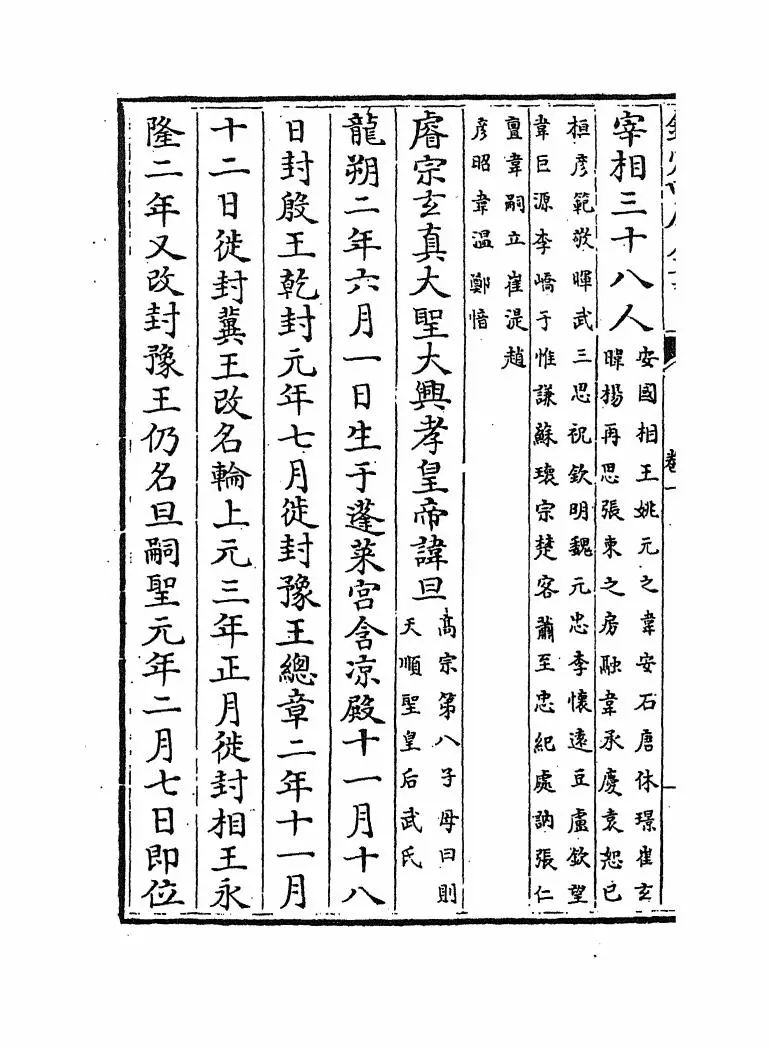 卷一
宰相三十八人
安國相王姚元之韋安石唐休璟崔玄
暐楊再思張柬之房融韋承慶袁恕已
桓彥範敬暉武三思祝欽明魏元忠李懷遠豆盧欽望
韋巨源李嶠于惟謙蘇瓌宗楚客蕭至忠紀處訥張仁
亶韋嗣立崔湜趙
彥昭韋溫鄭愔
睿宗玄真大聖大興孝皇帝諱旦
髙宗第八子母曰則
天順聖皇后武氏
龍朔二年六月一日生于蓬萊宮含凉殿十一月十八
日封殷王乾封元年七月徙封豫王總章二年十一月
十二日徙封冀王改名輪上元三年正月徙封相王永
隆二年又改封豫王仍名旦嗣聖元年二月七日即位